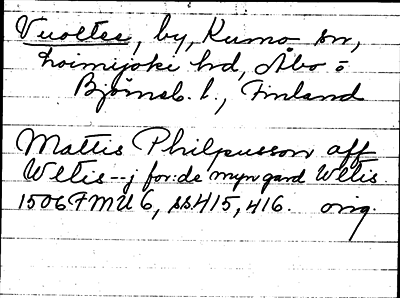 Vuoltee, by, Kumo sn,
Loimijoki hd, Åbo o
Björneb. l., Finland
Mattis Philpusson aff
Wltis--j for:de myngard Wltis.
1506 FMU 6, ss 415, 416. orig